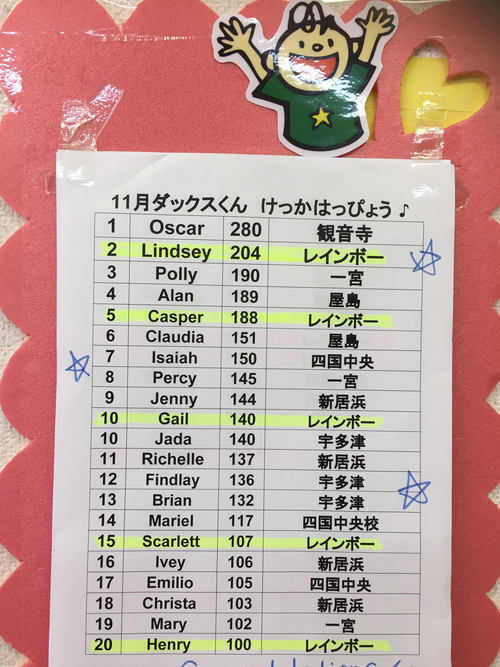 11月ダックスくん けっかはっぴょう♪
1 Oscar 280 観音寺
2 Lindsey 204 レインボー
3 Polly 190 一宮
4 Alan 189 屋島
5 Casper 188 レインボー
6 Claudia 151 屋島
7 Isaiah 150 四国中央
8 Percy 145 一宮
9 Jenny 144 新居浜
10 Gail 140 レインボー
10 Jada 140 宇多津
11 Richelle 137 新居浜
12 Findlay 136 宇多津
13 Brian 132 宇多津
14 Mariel 117 四国中央校
15 Scarlett 107 レインボー
16 Ivey 106 新居浜
17 Emilio 105 四国中央
18 Christa 103 新居浜
19 Mary 102 一宮
20 Henry 100 レインボー